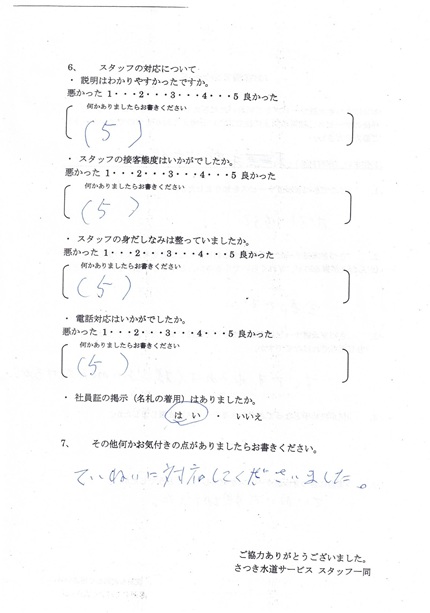 6、 スタッフの対応について
・ 説明はわかりやすかったですか。
悪かった 1・・・2・・・3・・・4・・・5 良かった
何かありましたらお書きください
(5)
・ スタッフの接客態度はいかがでしたか。
悪かった 1・・・2・・・3・・・4・・・5 良かった
何かありましたらお書きください
(5)
・ スタッフの身だしなみは整っていましたか。
悪かった 1・・・2・・・3・・・4・・・5 良かった
何かありましたらお書きください
(5)
・ 電話対応はいかがでしたか。
悪かった 1・・・2・・・3・・・4・・・5 良かった
何かありましたらお書きください
(5)
・ 社員証の掲示（名札の着用）はありましたか。
はい ・ いいえ
7、 その他何かお気付きの点がありましたらお書きください。
ていねいに対応してくださいました。
ご協力ありがとうございました。
さつき水道サービス スタッフ一同